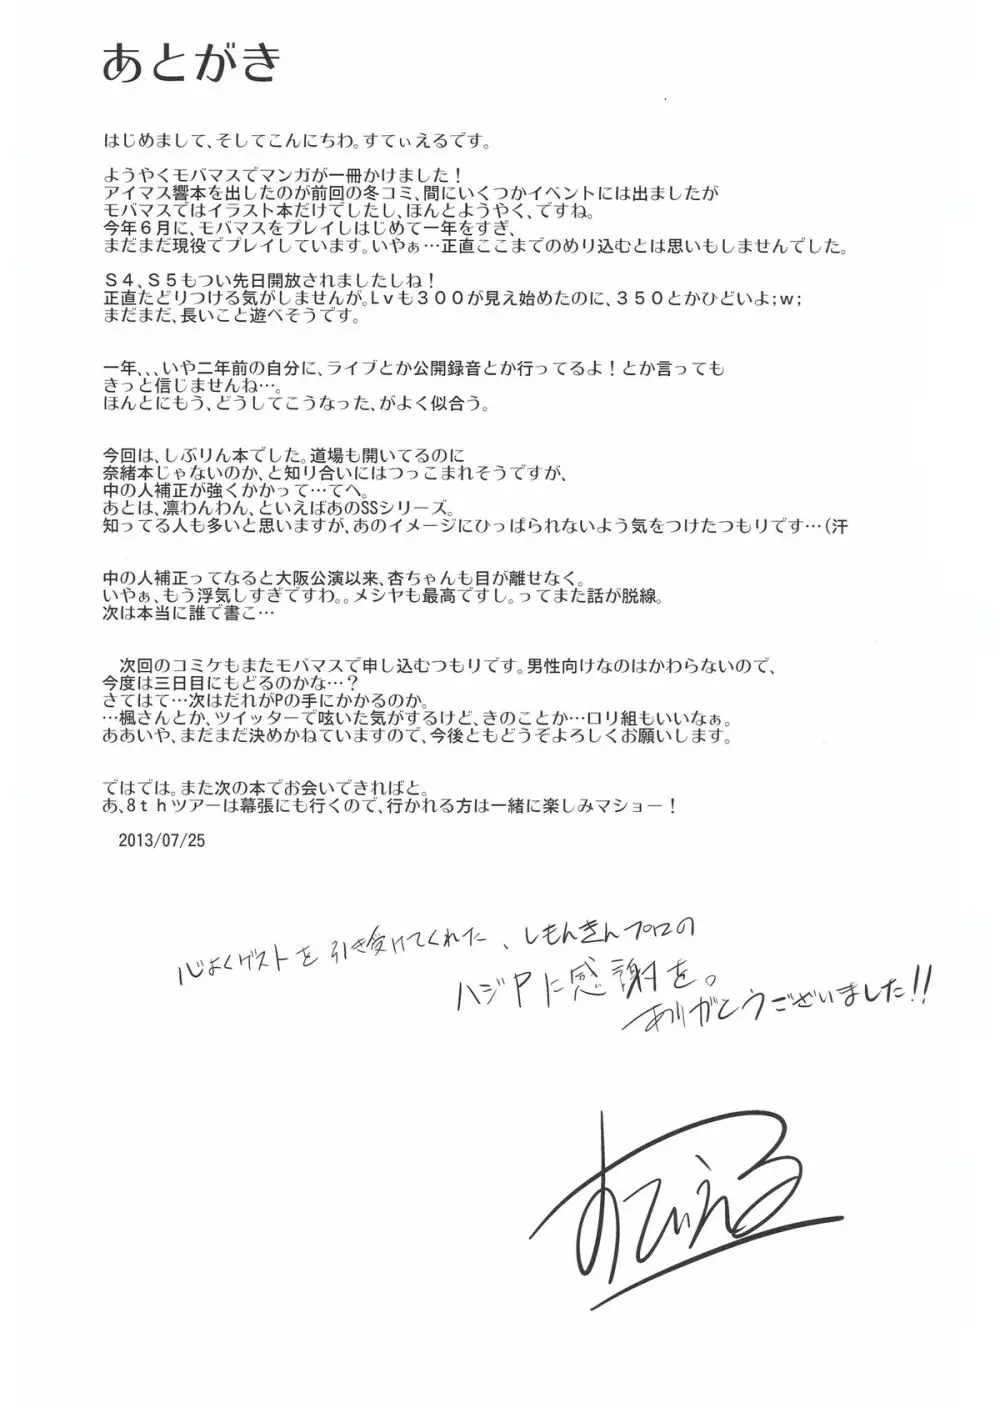 あとがき
はじめまして、そしてこんにちわ。すてぃえるです。
ようやくモバマスでマンガが一冊かけました！
アイマス響本を出したのが前回の冬コミ、間にいくつかイベントには出ましたが
モバマスではイラスト本だけでしたし、ほんとようやく、ですね。
今年６月に、モバマスをプレイしはじめて一年をすぎ、
まだまだ現役でプレイしています。いやぁ…正直ここまでのめり込むとは思いもしませんでした。
Ｓ４、Ｓ５もつい先日開放されましたしね！
正直たどりつける気がしませんが。Ｌｖも３００が見え始めたのに、３５０とかひどいよ;ｗ;
まだまだ、長いこと遊べそうです。
一年、、、いや二年前の自分に、ライブとか公開録音とか行ってるよ！とか言っても
きっと信じませんね…。
ほんとにもう、どうしてこうなった、がよく似合う。
今回は、しぶりん本でした。道場も開いてるのに
奈緒本じゃないのか、と知り合いにはつっこまれそうですが、
中の人補正が強くかかって…てへ。
あとは、凛わんわん、といえばあのSSシリーズ。
知ってる人も多いと思いますが、あのイメージにひっぱられないよう気をつけたつもりです…(汗
中の人補正ってなると大阪公演以来、杏ちゃんも目が離せなく。
いやぁ、もう浮気しすぎですわ。。メシヤも最高ですし。ってまた話が脱線。
次は本当に誰で書こ…
次回のコミケもまたモバマスで申し込むつもりです。男性向けなのはかわらないので、
今度は三日目にもどるのかな…？
さてはて…次はだれがPの手にかかるのか。
…楓さんとか、ツイッターで呟いた気がするけど、きのことか…ロリ組もいいなぁ。
ああいや、まだまだ決めかねていますので、今後ともどうぞよろしくお願いします。
ではでは。また次の本でお会いできればと。
あ、８ｔｈツアーは幕張にも行くので、行かれる方は一緒に楽しみマショー！
2013/07/25
心よくゲストを引き受けてくれた、しもんきんプロの
ハジPに感謝を。
ありがとうございました!!
すてぃえる